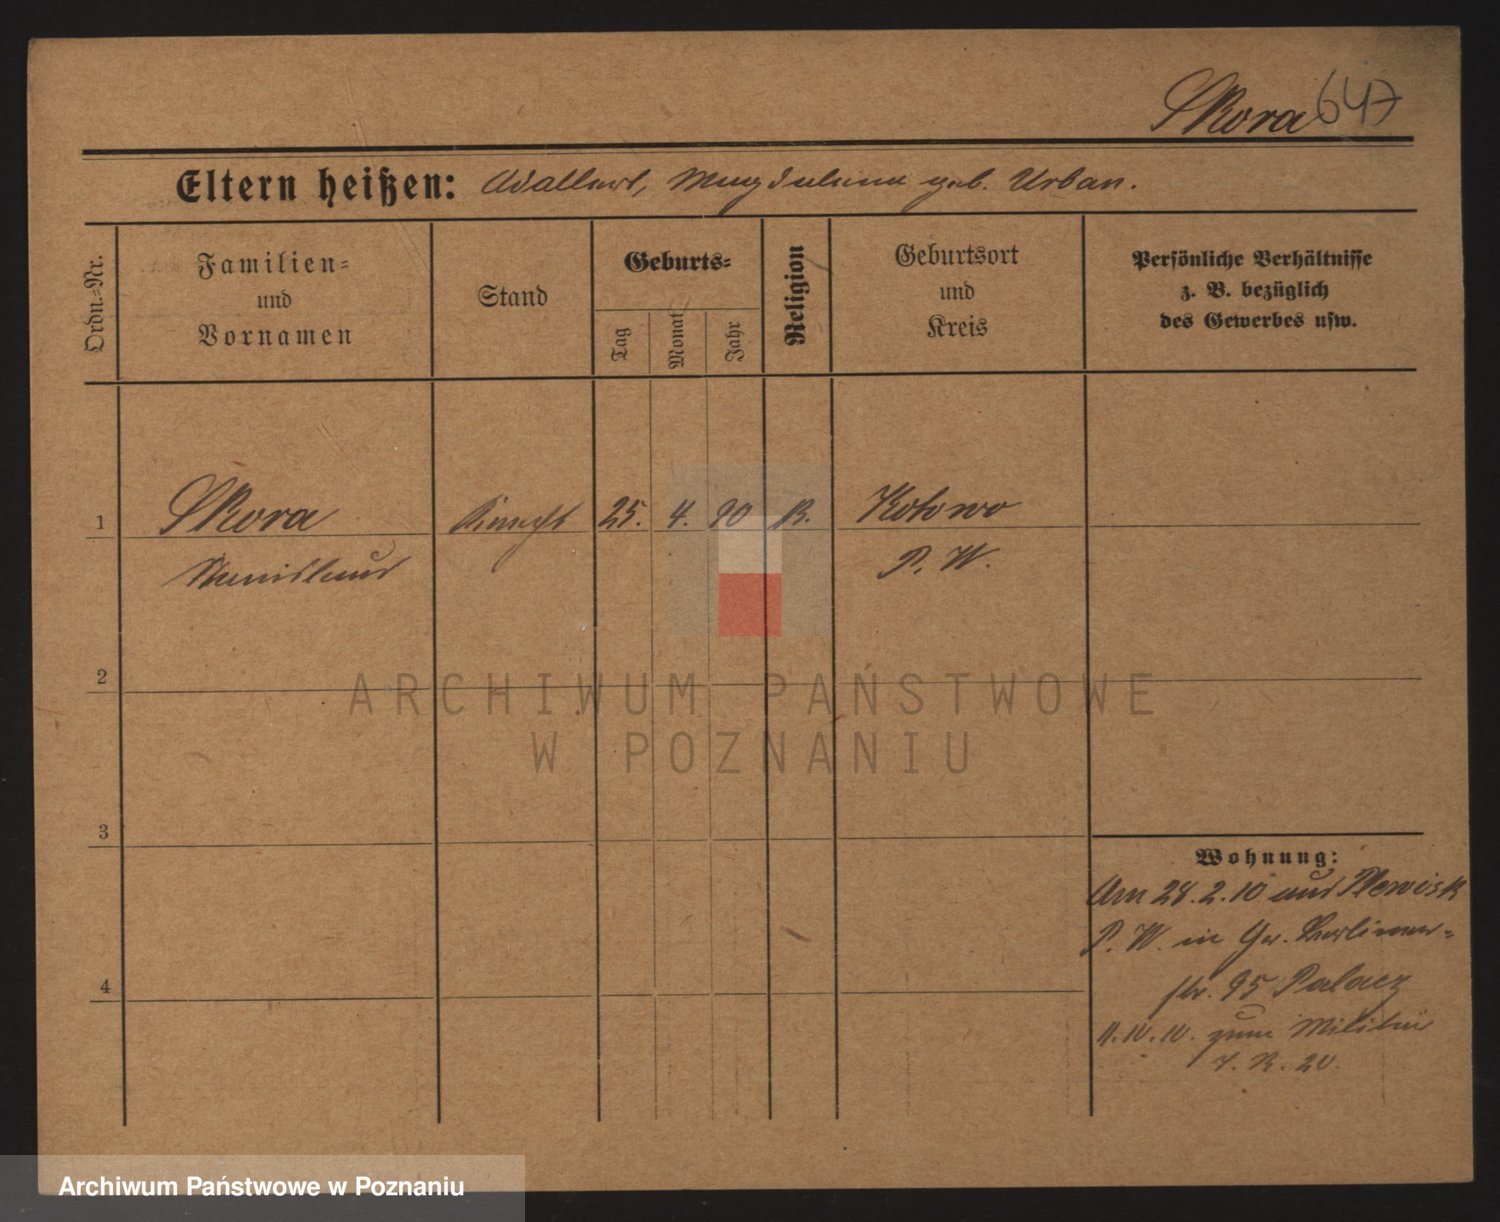 Skora 647
Eltern heißen: Adalbert, Magdalena geb. Urban.
Ordn.-Nr.
Familien-
und
Vornamen
Stand
Geburts-
Tag
Monat
Jahr
Religion
Geburtsort
und
Kreis
Persönliche Verhältnisse
z. B. bezüglich
des Gewerbes usw.
1 Skora Knecht 25. 4. 90 K. Kotowo
Stanislaus P. W.
2
3
4
Wohnung:
Am 28.2.10 aus Plewisk
P. W. in Gr. Berliner-
str. 95 Palacz
11.10.10. zum Militär
I. R. 20.
ARCHIWUM PAŃSTWOWE
W POZNANIU
Archiwum Państwowe w Poznaniu